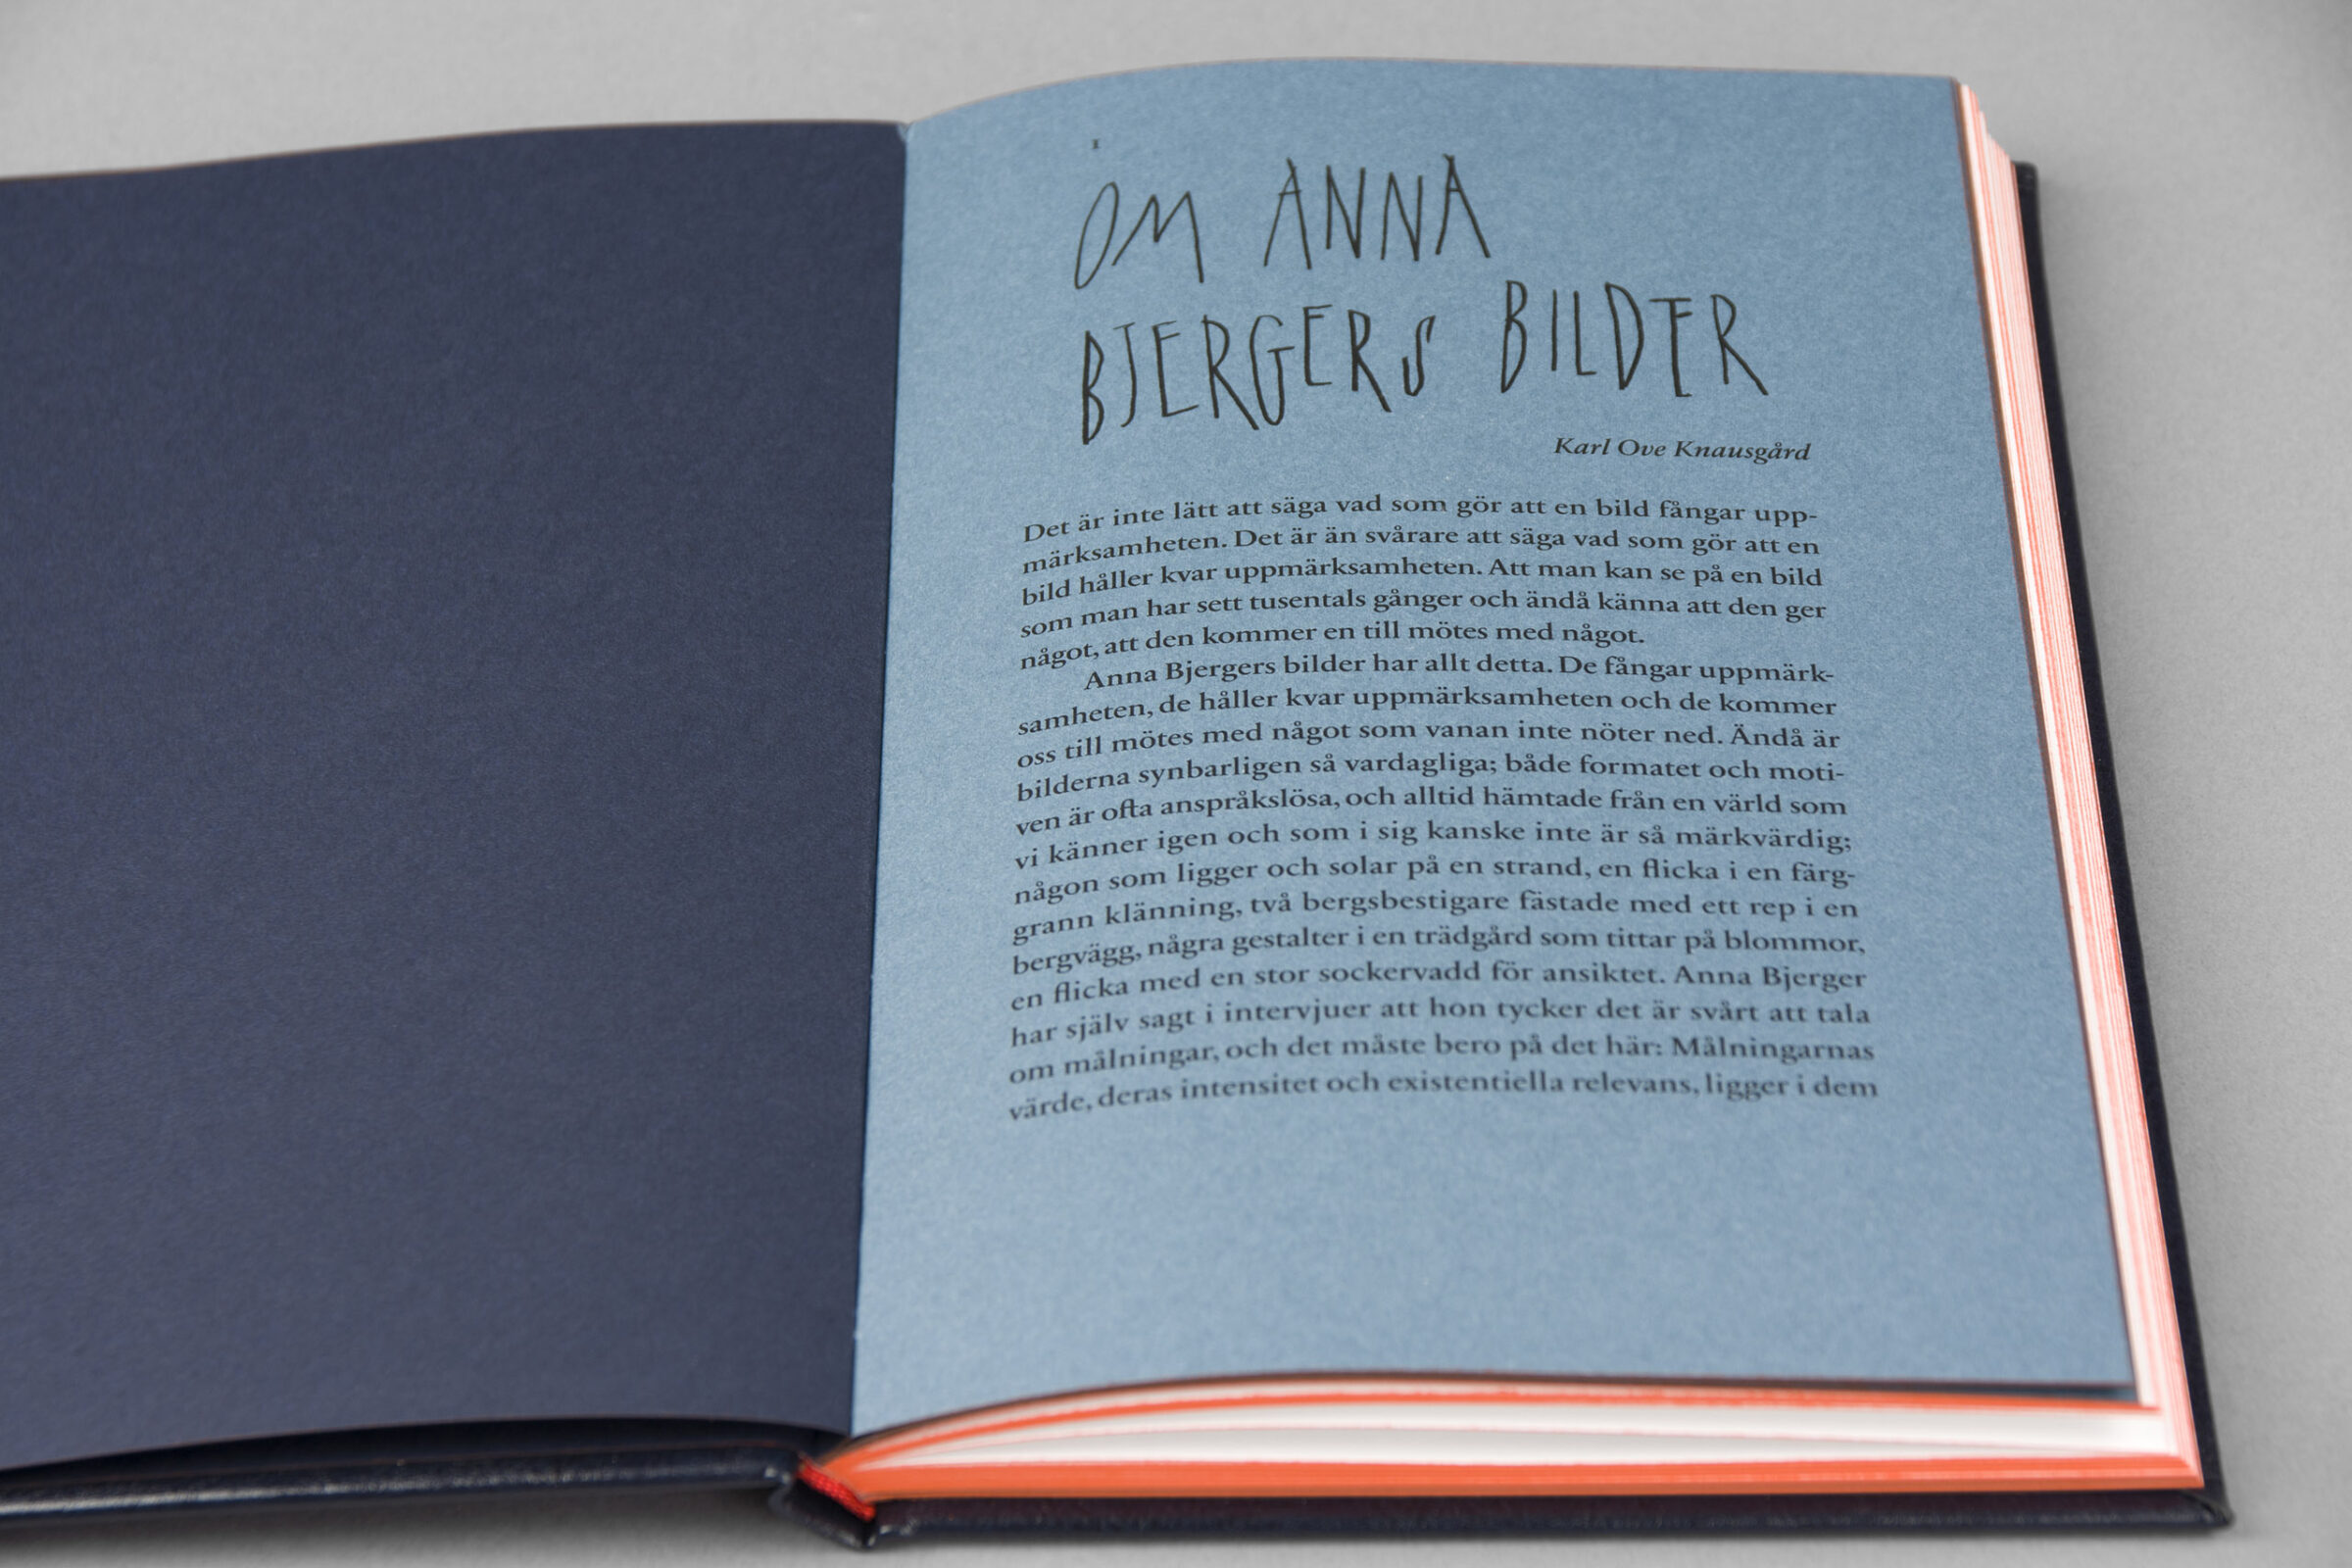 I
OM ANNA
BJERGERS BILDER
Karl Ove Knausgård
Det är inte lätt att säga vad som gör att en bild fångar upp-
märksamheten. Det är än svårare att säga vad som gör att en
bild håller kvar uppmärksamheten. Att man kan se på en bild
som man har sett tusentals gånger och ändå känna att den ger
något, att den kommer en till mötes med något.
Anna Bjergers bilder har allt detta. De fångar uppmärk-
samheten, de håller kvar uppmärksamheten och de kommer
oss till mötes med något som vanan inte nöter ned. Ändå är
bilderna synbarligen så vardagliga; både formatet och moti-
ven är ofta anspråkslösa, och alltid hämtade från en värld som
vi känner igen och som i sig kanske inte är så märkvärdig;
någon som ligger och solar på en strand, en flicka i en färg-
grann klänning, två bergsbestigare fästade med ett rep i en
bergvägg, några gestalter i en trädgård som tittar på blommor,
en flicka med en stor sockervadd för ansiktet. Anna Bjerger
har själv sagt i intervjuer att hon tycker det är svårt att tala
om målningar, och det måste bero på det här: Målningarnas
värde, deras intensitet och existentiella relevans, ligger i dem